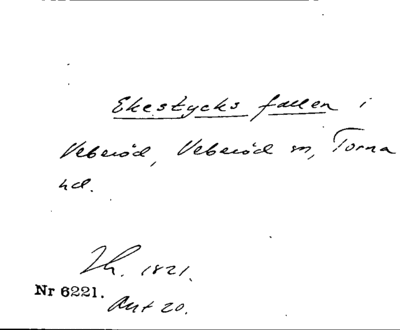 Ekestycks fallen i
Veberöd, Veberöd sn, Torna
hd.
1821.
Nr 6221.
Akt 20.